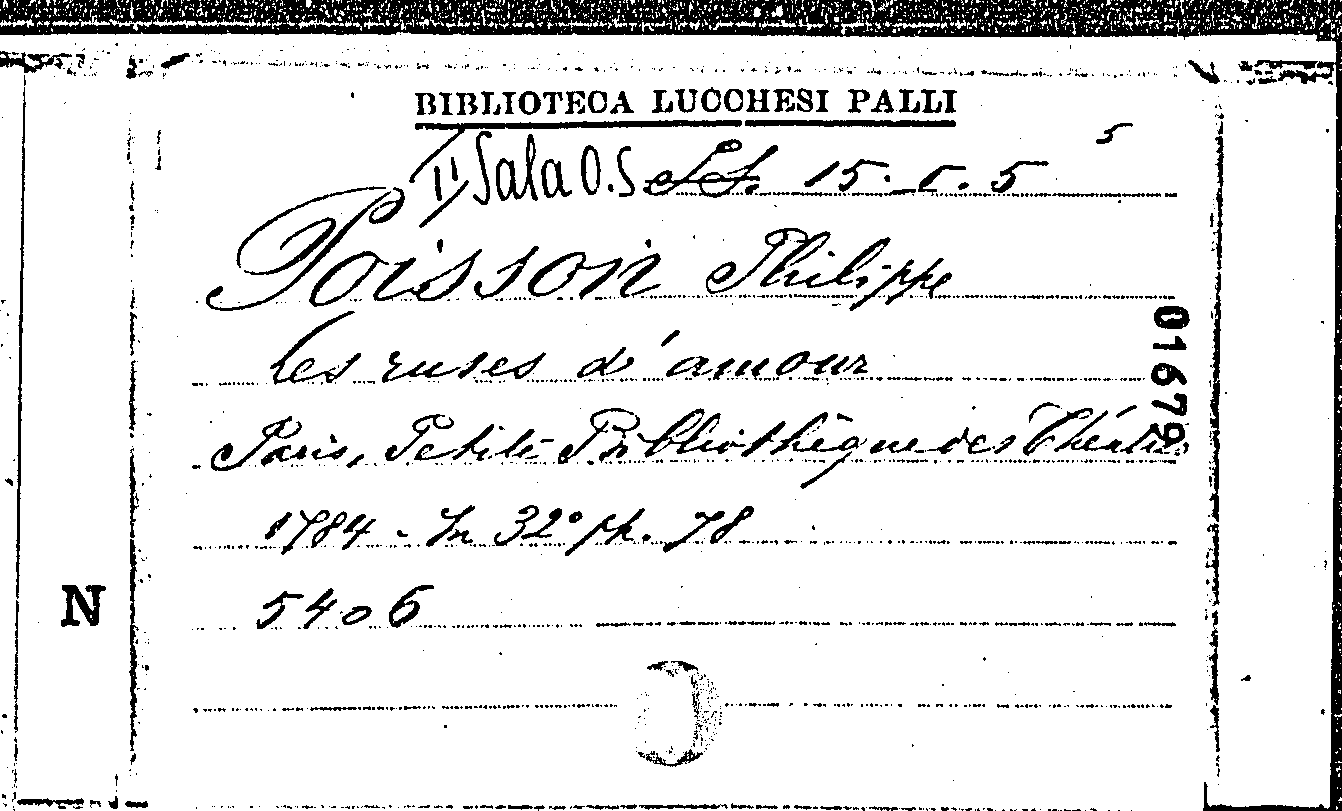 BIBLIOTECA LUCCHESI PALLI
5
II Sala O.S. 15. 5
Poisson Philippe
Les ruses d'amour
01679
Paris, Petite Bibliothèque des Théâtres
1784 - In 32° pp. 78
N
5406